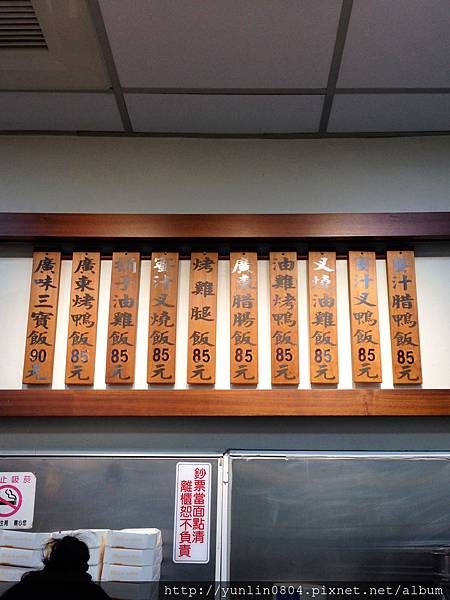 廣味三寶飯90元
廣東烤鴨飯85元
油雞飯85元
蜜汁叉燒飯85元
烤雞腿飯85元
廣東腊腸飯85元
油雞烤鴨飯85元
叉燒油雞飯85元
蜜汁叉鴨飯85元
蜜汁腊鴨飯85元
止吸菸
鈔票當面點清
離櫃恕不負責
http://yunlin0804.pixnet.net/album